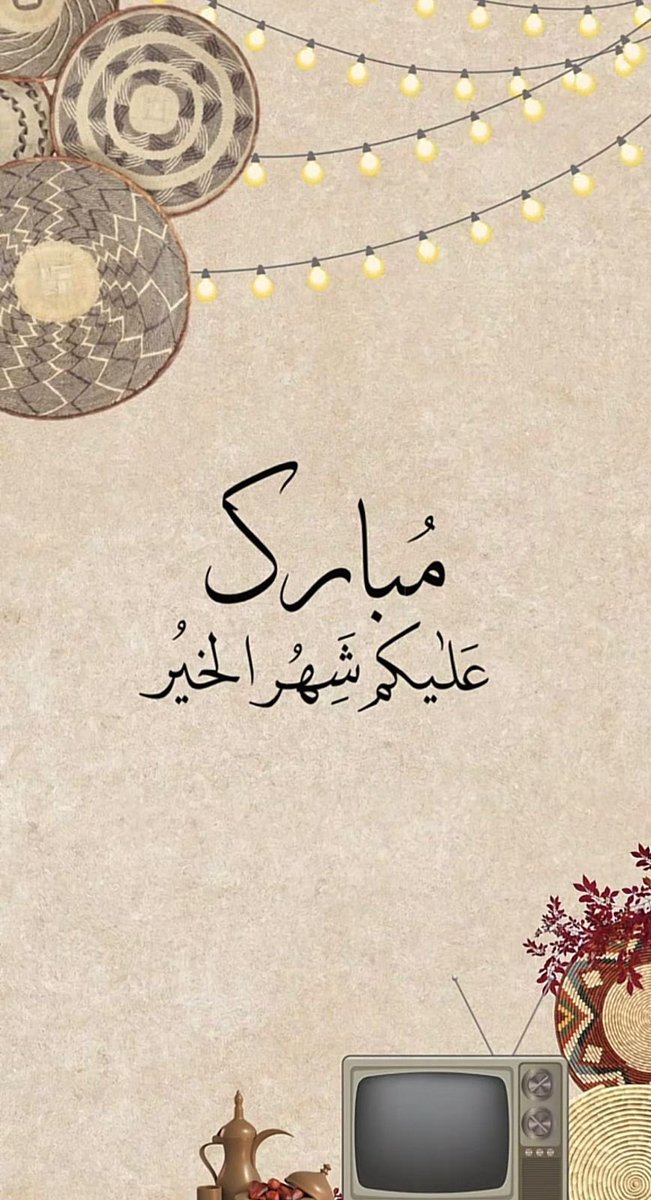 مُبارك
عَلَيكم شَهِرُ الخيرُ